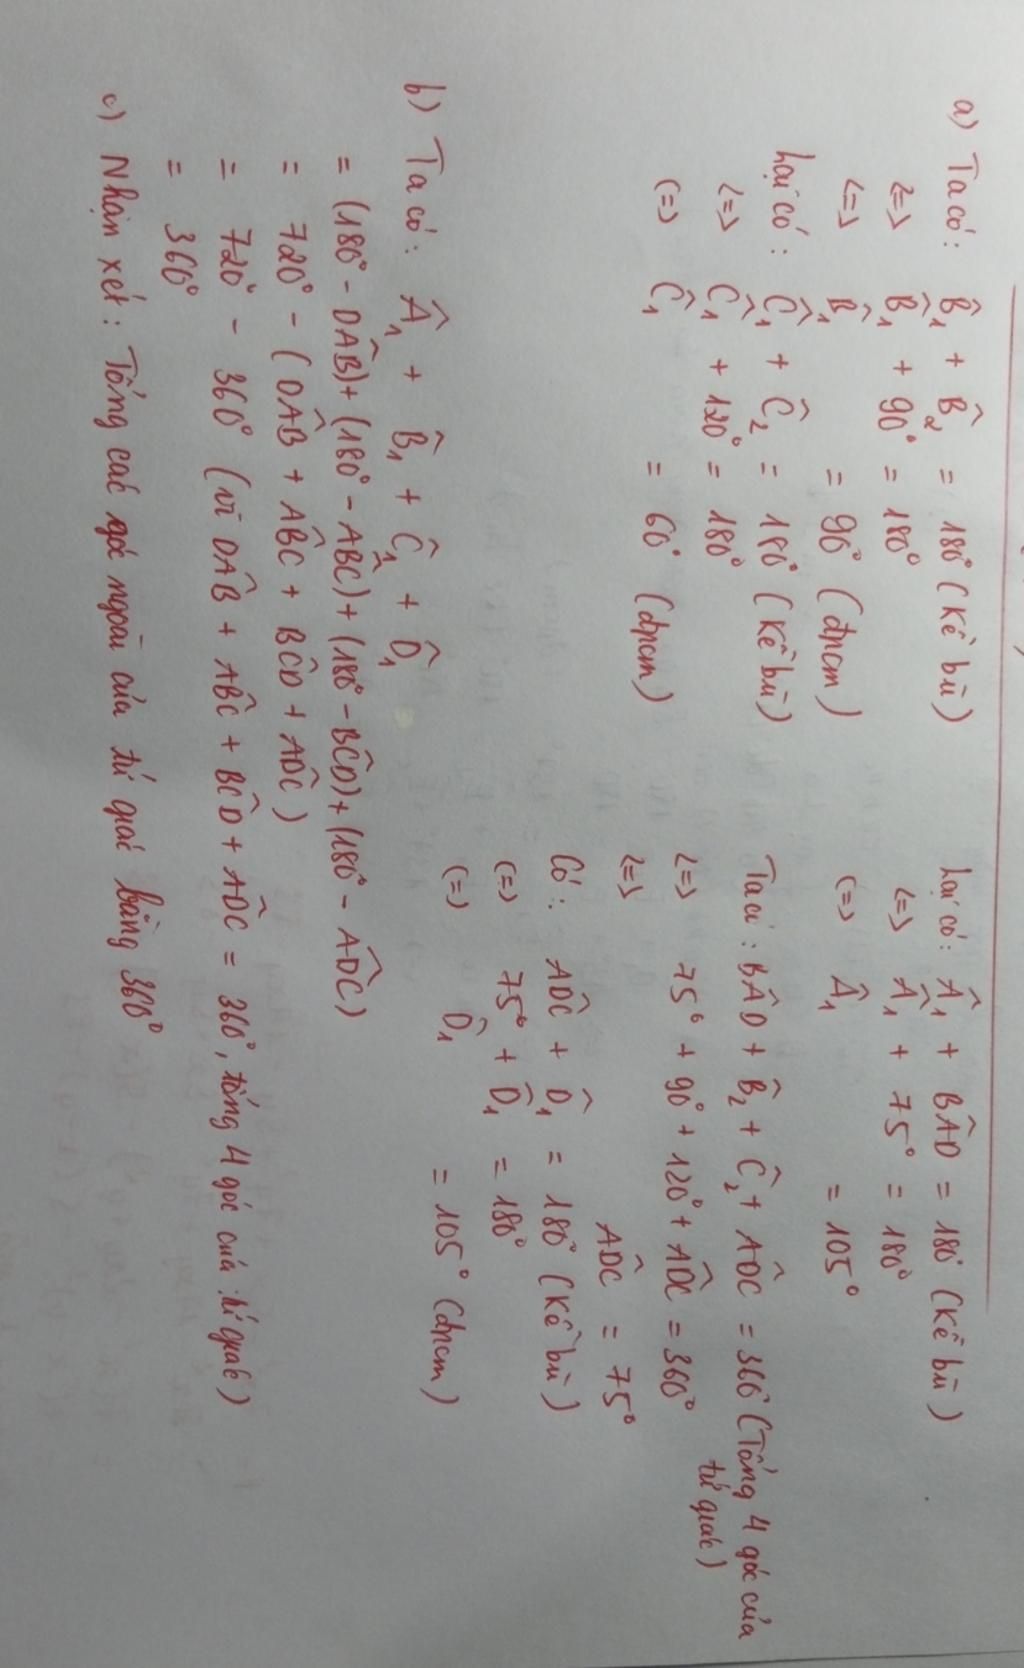 a) Ta có: B̂₁ + B̂₂ = 180° (kề bù)
<=> B̂₁ + 90° = 180°
<=> B̂₁ = 90° (đpcm)
Lại có: Ĉ₁ + Ĉ₂ = 180° (kề bù)
<=> Ĉ₁ + 120° = 180°
<=> Ĉ₁ = 60° (đpcm)
Lại có: Â₁ + BÂD = 180° (kề bù)
<=> Â₁ + 75° = 180°
<=> Â₁ = 105°
Ta có: BÂD + B̂₂ + Ĉ₂ + AD̂C = 360° (Tổng 4 góc của
tứ giác)
<=> 75° + 90° + 120° + AD̂C = 360°
<=> AD̂C = 75°
Có: AD̂C + D̂₁ = 180° (kề bù)
<=> 75° + D̂₁ = 180°
<=> D̂₁ = 105° (đpcm)
b) Ta có: Â₁ + B̂₁ + Ĉ₁ + D̂₁
= (180° - DÂB) + (180° - AB̂C) + (180° - BĈD) + (180° - AD̂C)
= 720° - (DÂB + AB̂C + BĈD + AD̂C)
= 720° - 360° (vì DÂB + AB̂C + BĈD + AD̂C = 360°, tổng 4 góc của tứ giác)
= 360°
c) Nhận xét: Tổng các góc ngoài của tứ giác bằng 360°